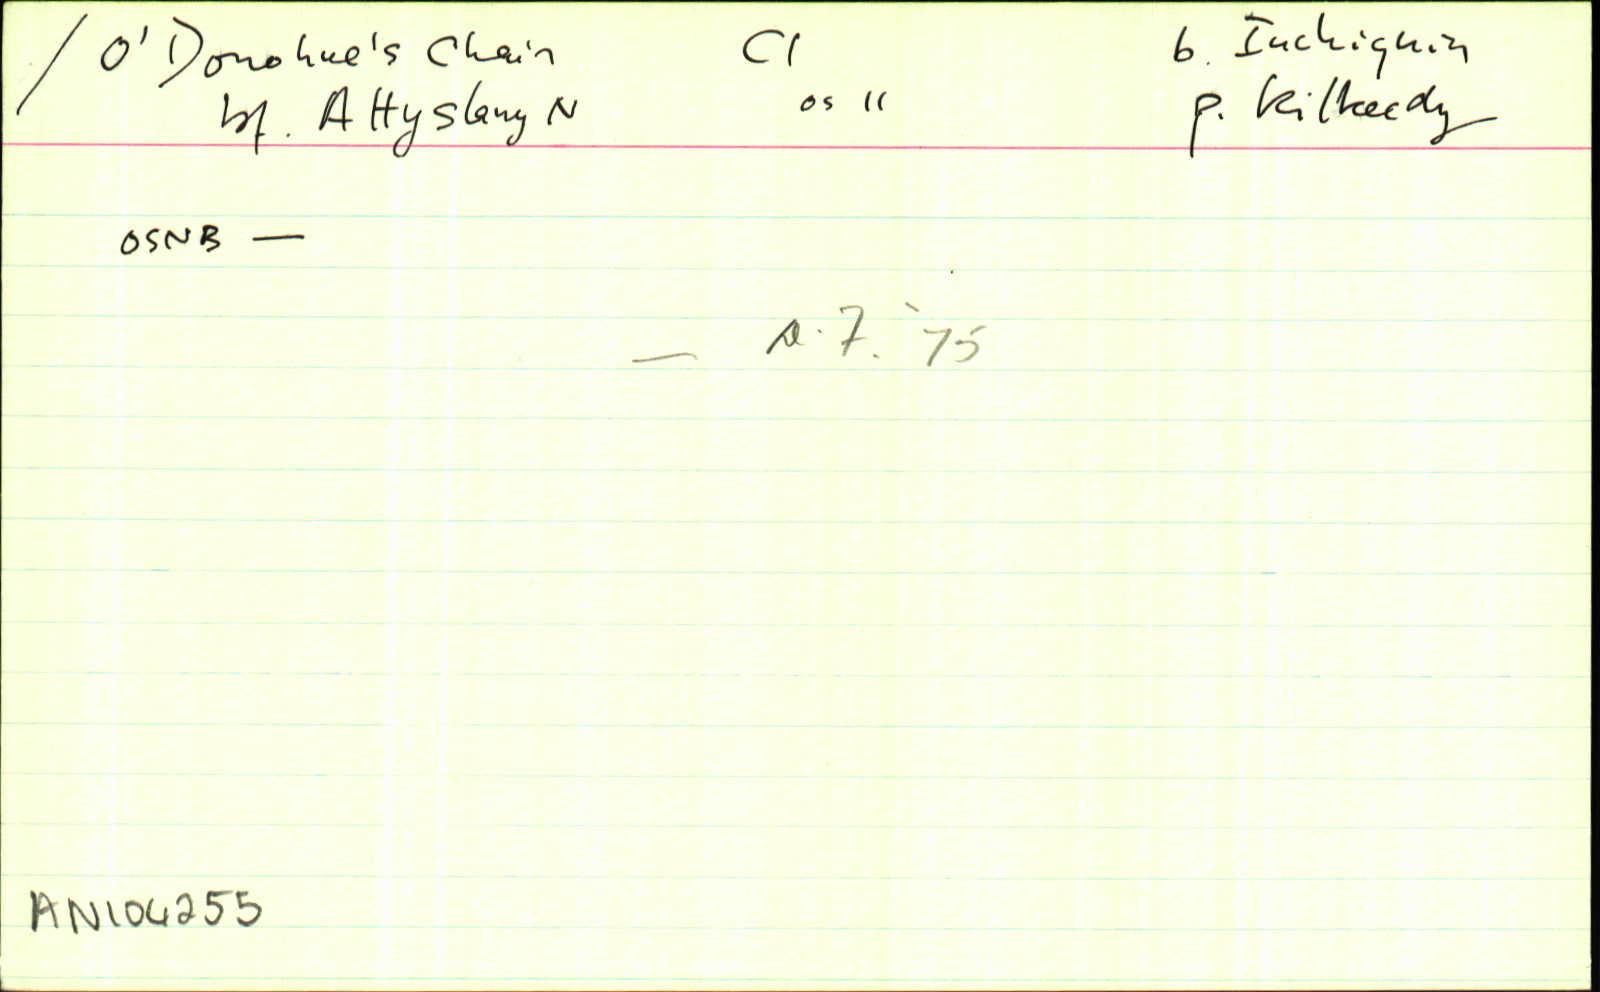 / O'Donohue's Chair Cl b. Inchiquin
bf. Attyslany N OS 11 p. Kilkeedy
OSNB —
— A.F. '75
AN104255